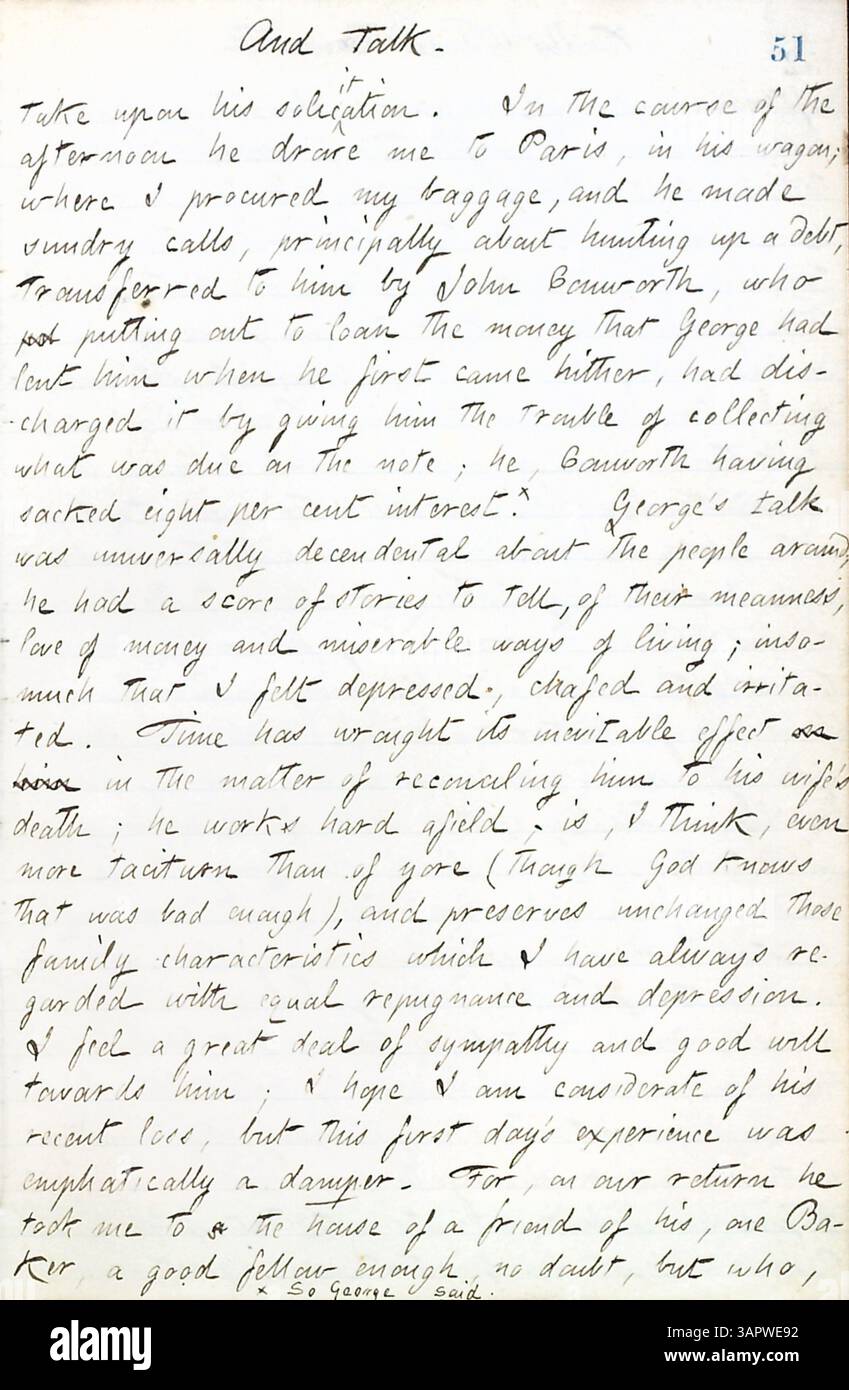 And Talk.
51
it
take upon his solication. In the course of the
afternoon he drove me to Paris, in his wagon;
where I procured my baggage, and he made
sundry calls, principally about hunting up a debt,
transferred to him by John Conworth, who
put putting out to loan the money that George had
lent him when he first came hither, had dis-
charged it by giving him the trouble of collecting
what was due on the note; he, Conworth having
sacked eight per cent interest.x George's talk
was universally decendental about the people around,
he had a score of stories to tell, of their meanness,
love of money and miserable ways of living; inso-
much that I felt depressed, chafed and irrita-
ted. Time has wrought its inevitable effect on
him in the matter of reconciling him to his wife's
death; he works hard afield, is, I think, even
more taciturn than of yore (though God knows
that was bad enough), and preserves unchanged those
family characteristics which I have always re-
garded with equal repugnance and depression.
I feel a great deal of sympathy and good will
towards him; I hope I am considerate of his
recent loss, but this first day's experience was
emphatically a damper. For, on our return he
took me to a the house of a friend of his, one Ba-
ker, a good fellow enough, no doubt, but who,
x So George said.
alamy
Image ID: 3APWE92
www.alamy.com